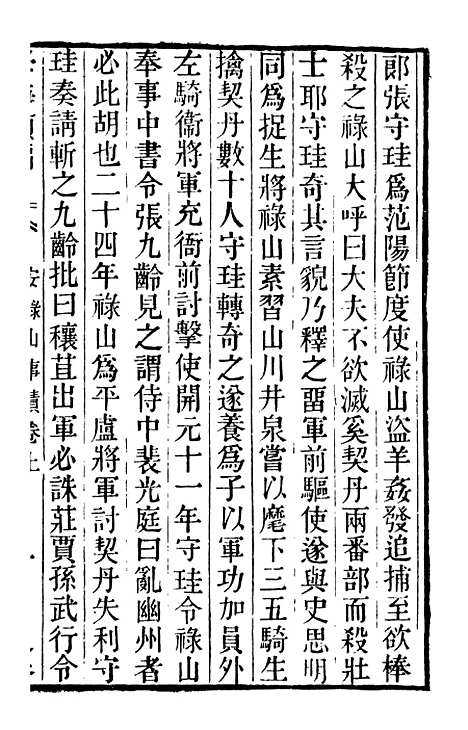 郞張守珪爲范陽節度使祿山盜羊姦發追捕至欲棒
殺之祿山大呼曰大夫不欲滅奚契丹兩番部而殺壯
士耶守珪奇其言貌乃釋之畱軍前驅使遂與史思明
同爲捉生將祿山素習山川井泉嘗以麾下三五騎生
擒契丹數十人守珪轉奇之遂養爲子以軍功加員外
左騎衞將軍充衙前討擊使開元十一年守珪令祿山
奉事中書令張九齡見之謂侍中裴光庭曰亂幽州者
必此胡也二十四年祿山爲平盧將軍討契丹失利守
珪奏請斬之九齡批曰穰苴出軍必誅莊賈孫武行令
安祿山事蹟卷上